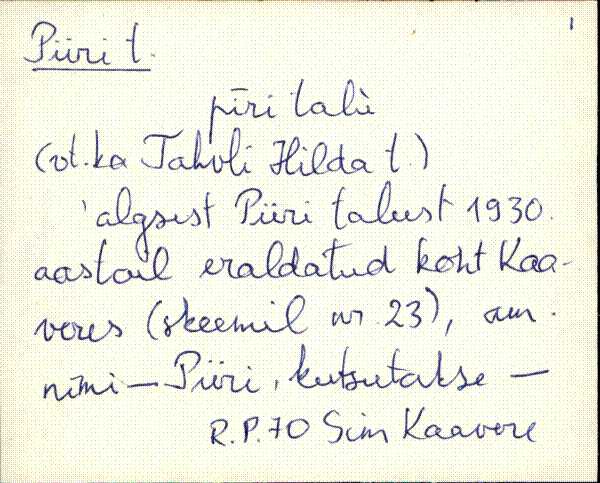 1
Piiri t.
pīri talù
(vt. ka Tahvli Hilda t.)
'algsest Piiri talust 1930.
aastail eraldatud koht Kaa-
veres (skeemil nr. 23), am.
nimi — Piiri, kutsutakse —
R.P. 70 Sim Kaavere